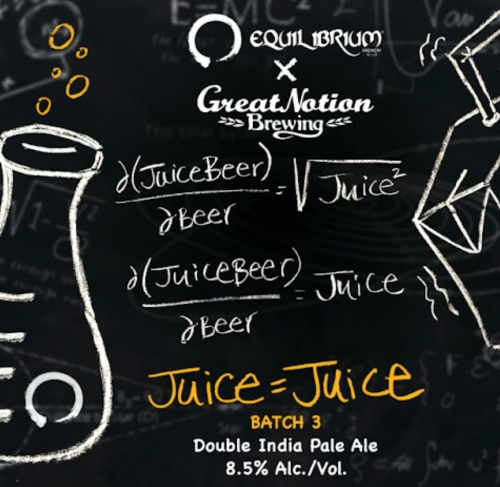 E=MC²
EQUILIBRIUM
BREWERY
X
Great Notion
Brewing
∂(JuiceBeer)
∂Beer
= √Juice²
∂(JuiceBeer)
∂Beer
= Juice
Juice=Juice
BATCH 3
Double India Pale Ale
8.5% Alc./Vol.